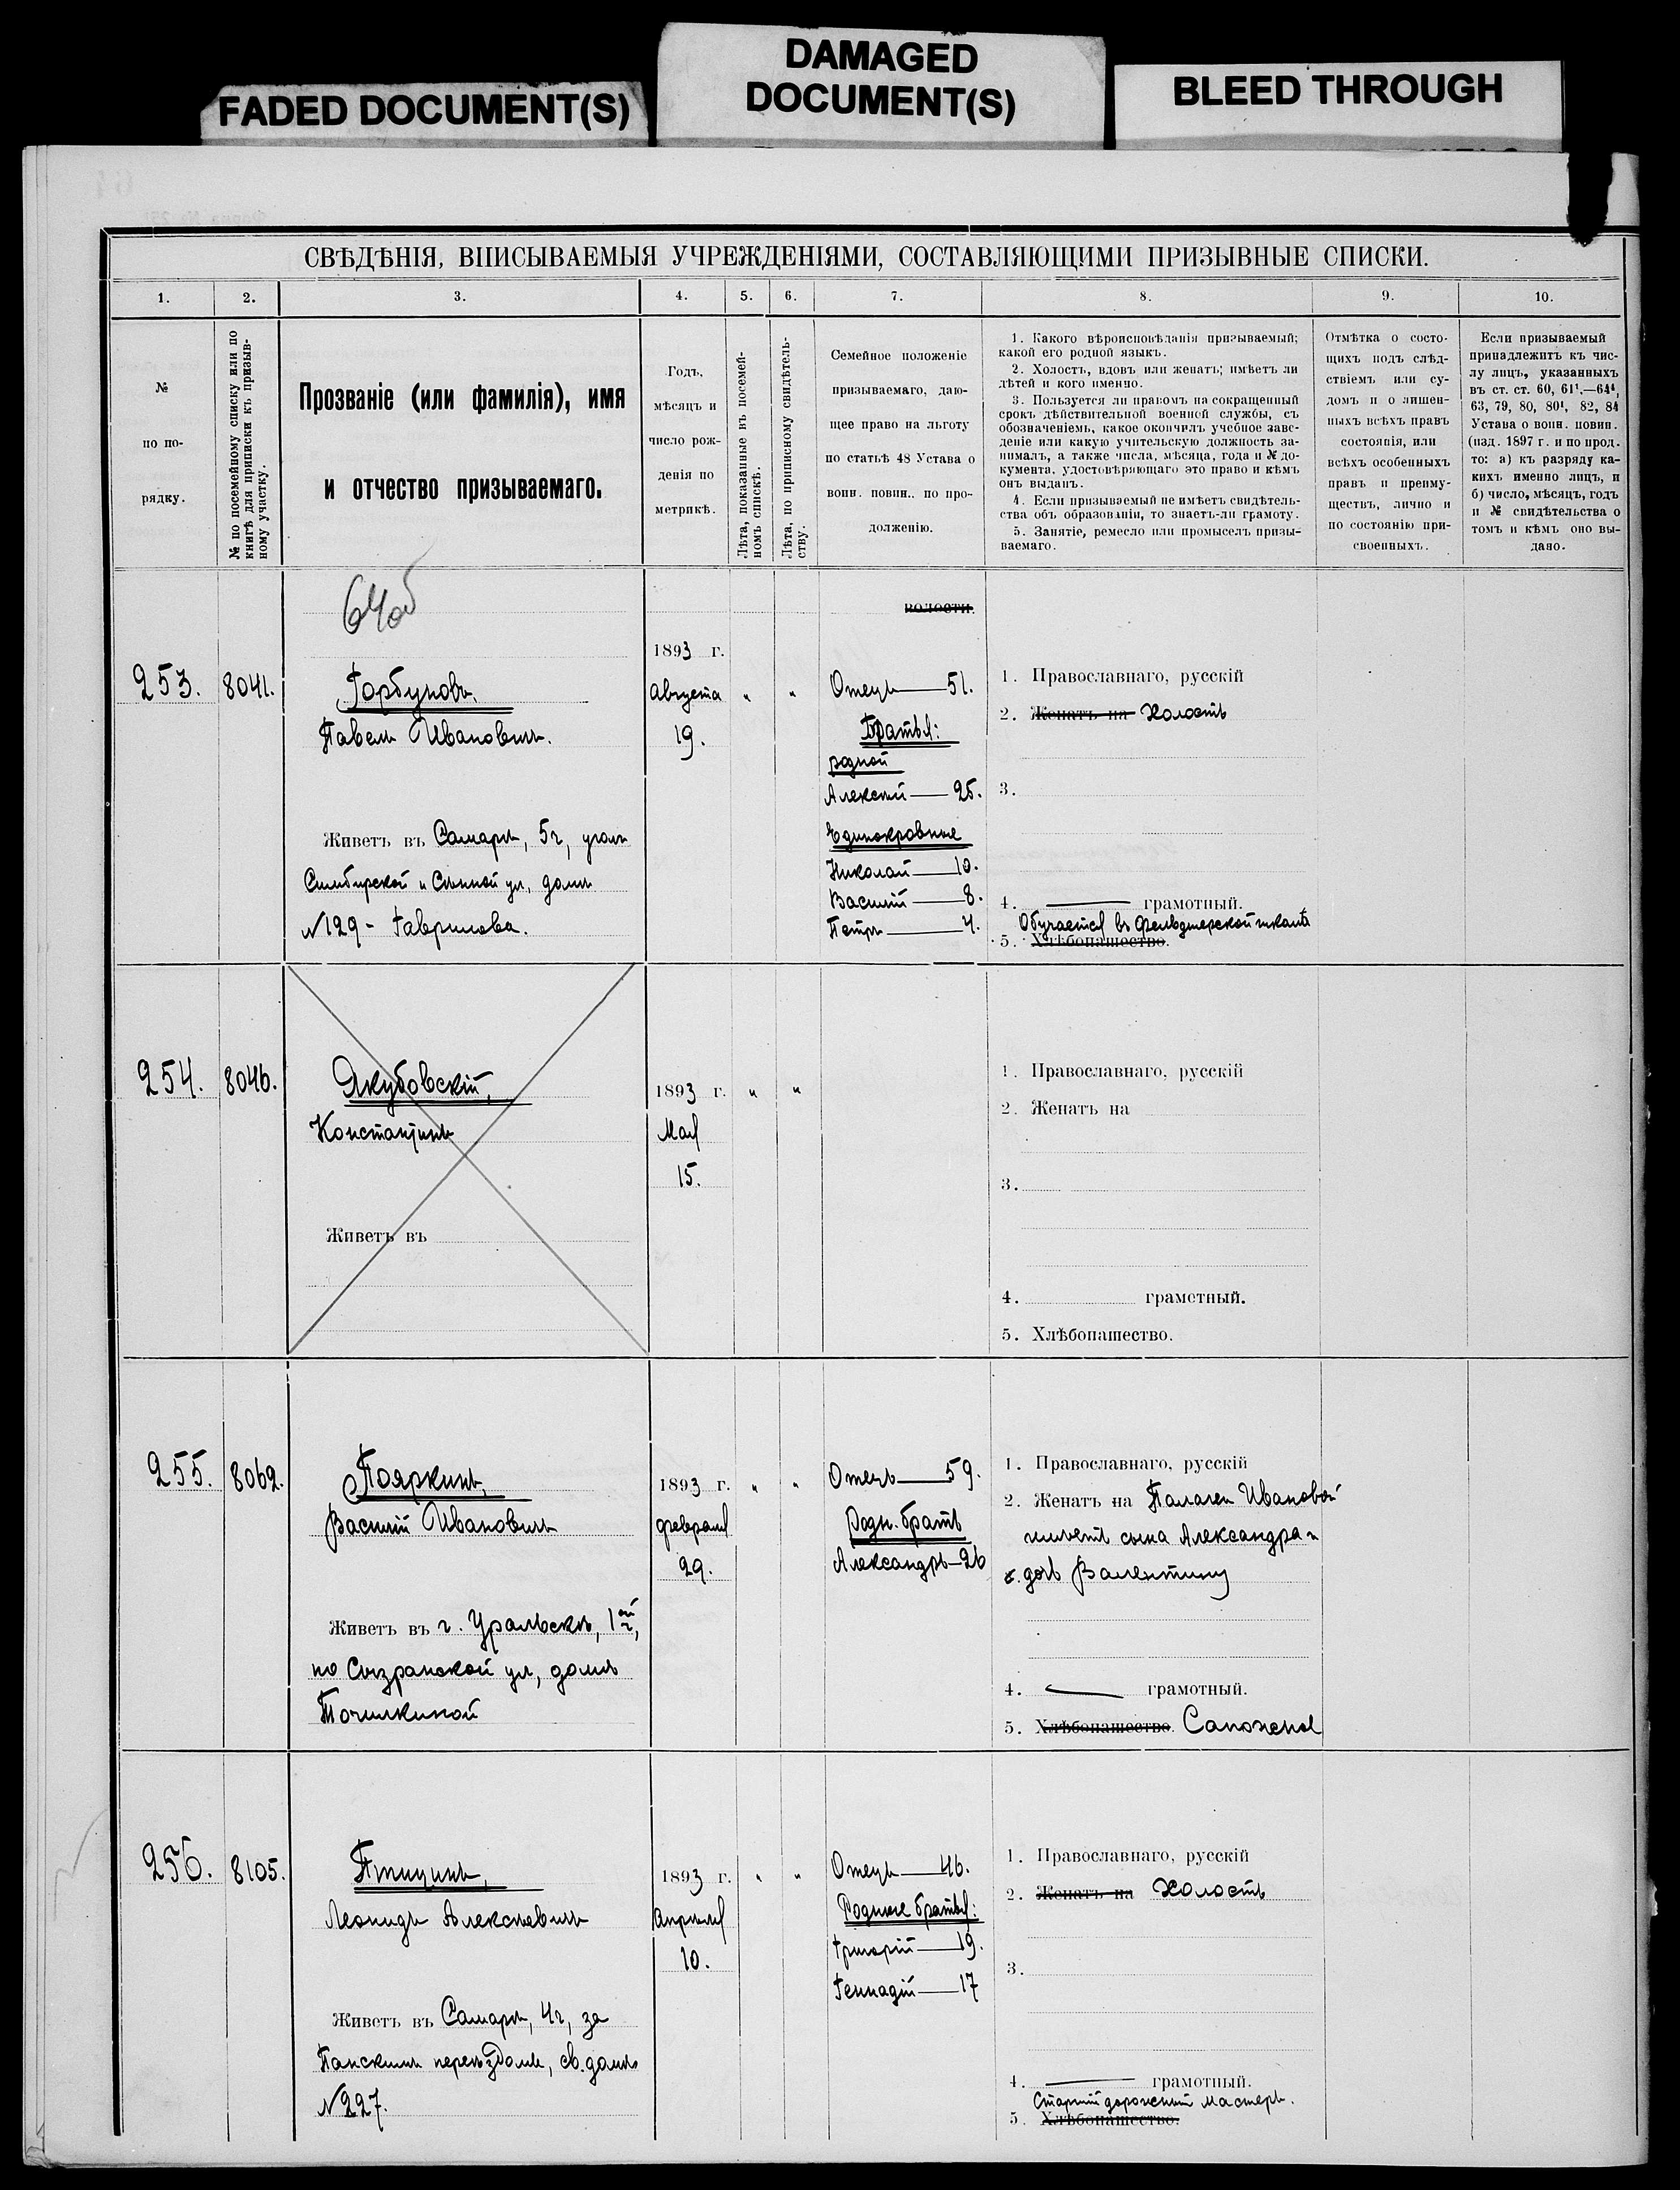 FADED DOCUMENT(S)
DAMAGED
DOCUMENT(S)
BLEED THROUGH
СВѢДѢНІЯ, ВПИСЫВАЕМЫЯ УЧРЕЖДЕНІЯМИ, СОСТАВЛЯЮЩИМИ ПРИЗЫВНЫЕ СПИСКИ.
1.
2.
3.
4.
5.
6.
7.
8.
9.
10.
№
по по-
рядку.
№ по посемейному списку или по
книгѣ для приписки къ призыв-
ному участку.
Прозваніе (или фамилія), имя
и отчество призываемаго.
Годъ,
мѣсяцъ и
число рож-
денія по
метрикѣ.
Лѣта, показанные въ посемей-
номъ спискѣ.
Лѣта, по приписному свидѣтель-
ству.
Семейное положеніе
призываемаго, даю-
щее право на льготу
по статьѣ 48 Устава о
воин. повин.. по про-
долженію.
1. Какого вѣроисповѣданія призываемый;
какой его родной языкъ.
2. Холостъ, вдовъ или женатъ; имѣетъ ли
дѣтей и кого именно.
3. Пользуется ли правомъ на сокращенный
срокъ дѣйствительной военной службы, съ
обозначеніемъ, какое окончилъ учебное заве-
деніе или какую учительскую должность за-
нималъ, а также числа, мѣсяца, года и № до-
кумента, удостовѣряющаго это право и кѣмъ
онъ выданъ.
4. Если призываемый не имѣетъ свидѣтель-
ства объ образованіи, то знаетъ-ли грамоту.
5. Занятіе, ремесло или промыселъ призы-
ваемаго.
Отмѣтка о состо-
щихъ подъ слѣд-
ствіемъ или су-
домъ и о лишен-
ныхъ всѣхъ правъ
состоянія, или
всѣхъ особенныхъ
правъ и преиму-
ществъ, лично и
по состоянію при-
своенныхъ.
Если призываемый
принадлежитъ къ чис-
лу лицъ, указанныхъ
въ ст. ст. 60, 61¹.—64⁴,
63, 79, 80, 80¹, 82, 84
Устава о воин. повин.
(изд. 1897 г. и по прод.
то: а) къ разряду ка-
кихъ именно лицъ, и
б) число, мѣсяцъ, годъ
и № свидѣтельства о
томъ и кѣмъ оно вы-
дано.
64об
253.
8041.
Горбуновъ,
Павелъ Ивановичъ.
Живетъ въ Самарѣ, 5ч, уголъ
Симбирской и Сѣнной ул, домъ
№129 - Гаврилова.
1893 г.
Августа
19.
"
"
волости.
Отецъ — 51.
Братья:
родной
Алексѣй — 25.
Единокровные
Николай — 10.
Василій — 8.
Петръ — 4.
1. Православнаго, русскій
2. Женатъ на Холостъ
3.
4. — грамотный.
Обучается въ Фельдшерской школѣ
5. Хлѣбопашество.
254.
8046.
Якубовскій,
Константинъ
Живетъ въ
1893 г.
Мая
15.
"
"
1. Православнаго, русскій
2. Женатъ на
3.
4. грамотный.
5. Хлѣбопашество.
255.
8062.
Пояркинъ,
Василій Ивановичъ
Живетъ въ г. Уральскѣ, 1ой ч,
по Сызранской ул, домъ
Точилкиной
1893 г.
Февраля
29.
"
"
Отецъ — 59.
Родн. братъ
Александръ — 26
1. Православнаго, русскій
2. Женатъ на Палагеи Ивановой
имѣетъ сына Александра и
дочь Валентину
4. — грамотный.
5. Хлѣбопашество. Сапожная
256.
8105.
Птицинъ,
Леонидъ Алексѣевичъ
Живетъ въ Самарѣ, 4ч, за
Панскимъ переѣздомъ, св. домъ
№227.
1893 г.
Апрѣля
10.
"
"
Отецъ — 46.
Родные братья:
Григорій — 19.
Геннадій — 17
1. Православнаго, русскій
2. Женатъ на Холостъ
3.
4. — грамотный.
Старшій дорожный мастеръ.
5. Хлѣбопашество.